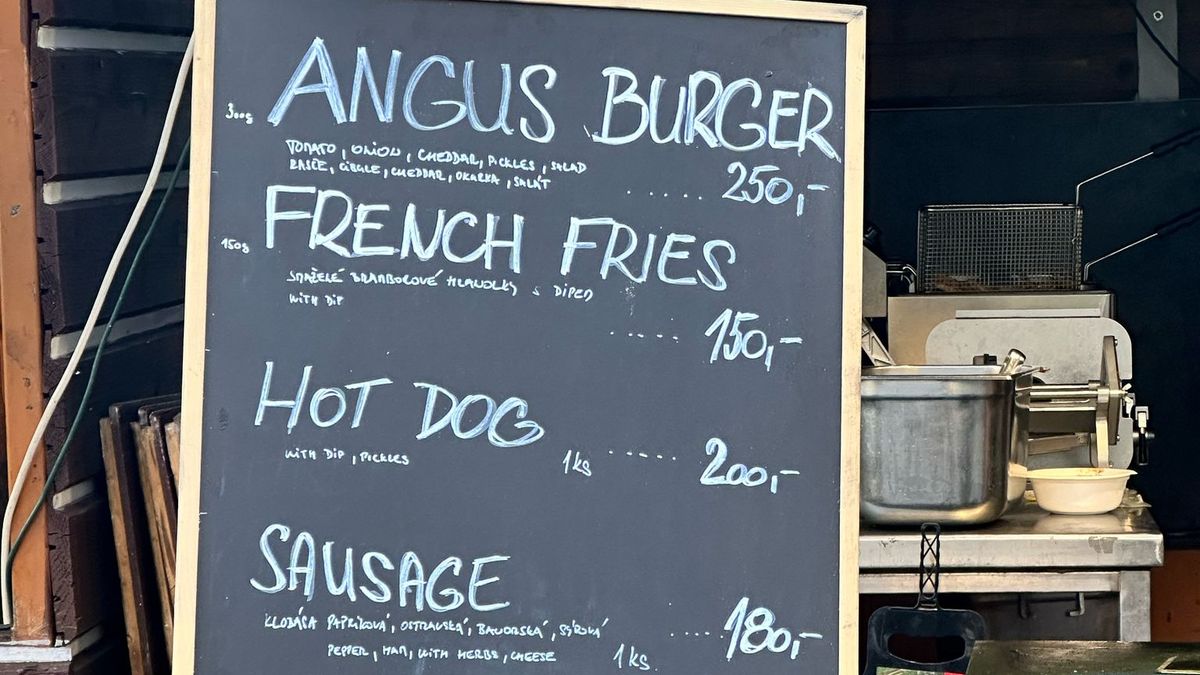 300g ANGUS BURGER
TOMATO, ONION, CHEDDAR, PICKLES, SALAD
RAJČE, CIBULE, CHEDDAR, OKURKA, SALÁT
..... 250,-
150g FRENCH FRIES
SMAŽELÉ BRAMBOROVÉ HRANOLKY S DIPEM
WITH DIP
..... 150,-
HOT DOG
WITH DIP, PICKLES 1ks ..... 200,-
SAUSAGE
KLOBÁSA PAPRIKOVÁ, OSTRAVSKÁ, BAVORSKÁ, SÝROVÁ ..... 180,-
PEPPER, HAM, WITH HERBS, CHEESE 1ks